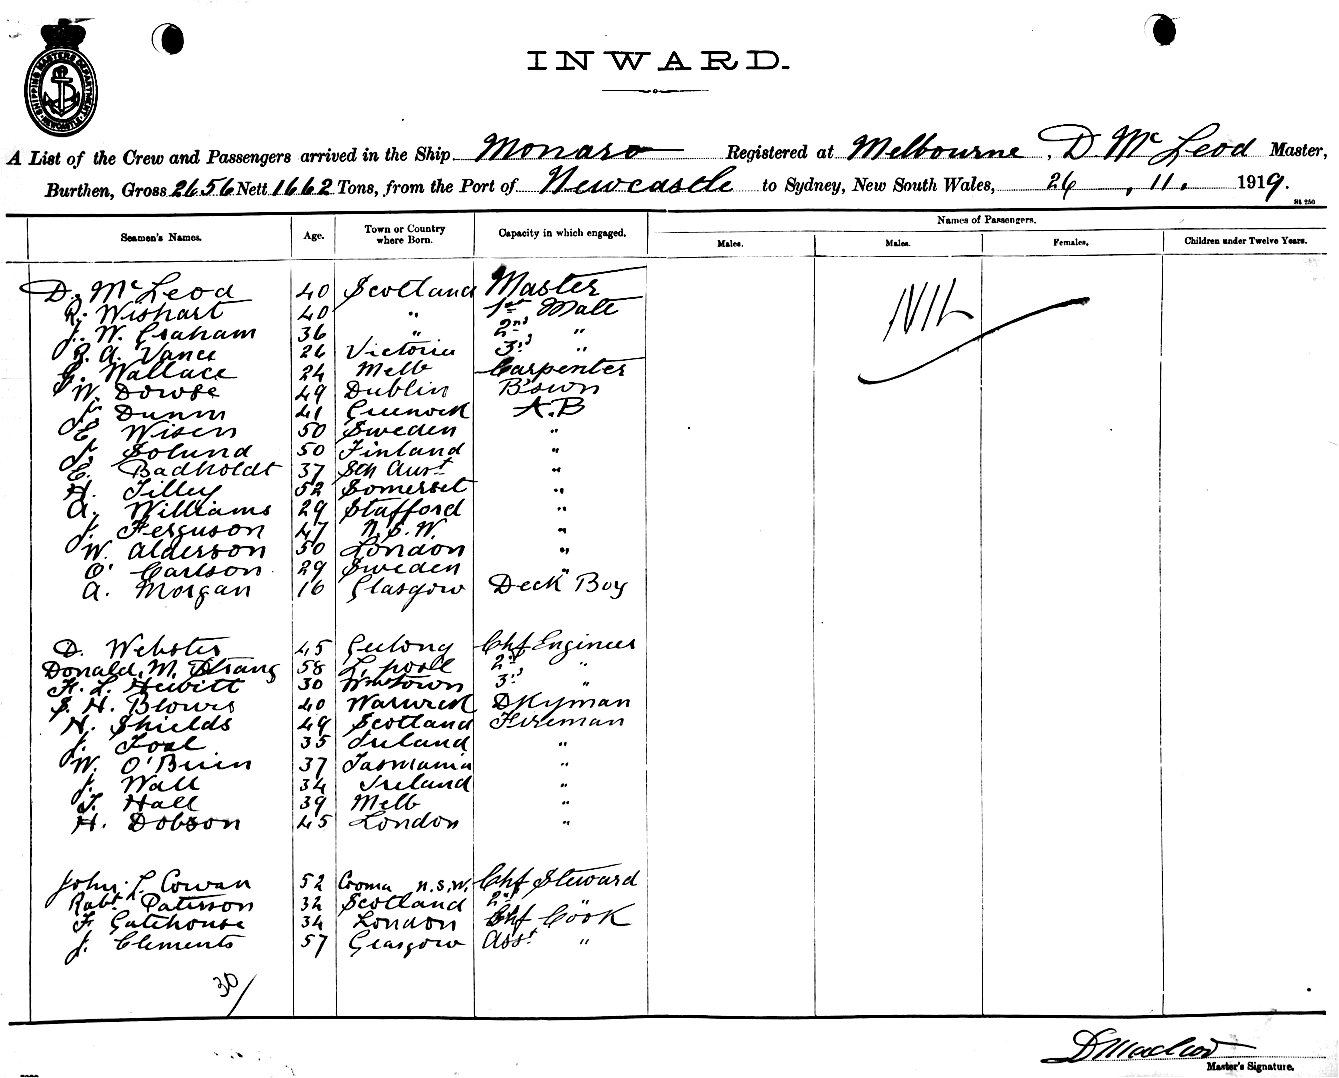 SHIPPING MASTERS DEPARTMENT NEWCASTLE
INWARD.
A List of the Crew and Passengers arrived in the Ship Monaro Registered at Melbourne, D McLeod Master,
Burthen, Gross 2656 Nett 1662 Tons, from the Port of Newcastle to Sydney, New South Wales, 26, 11. 1919.
St 250
Seamen's Names. Age. Town or Country where Born. Capacity in which engaged. Names of Passengers.
Males. Males. Females. Children under Twelve Years.
D. McLeod 40 Scotland Master NIL
R. Wishart 40 " 1st Mate
J. W. Graham 36 " 2nd "
R. A. Vance 26 Victoria 3rd "
G. Wallace 24 Melb Carpenter
W. Dowse 49 Dublin B'swn
J. Dunn 41 Greenock A.B
E. Wisen 50 Sweden "
J. Solund 50 Finland "
E. Badholdt 37 Sth Aust "
H. Tilley 52 Somerset "
A. Williams 29 Stafford "
J. Ferguson 47 N.S.W. "
W. Alderson 50 London "
O. Carlson 29 Sweden "
A. Morgan 16 Glasgow Deck Boy
D. Webster 45 Geelong Chf Engineer
Donald. M. Strang 58 L. pool 2nd "
H. L. Hewitt 30 3rd "
S. H. Blows 40 Warwick DKyman
N. Shields 49 Scotland Fireman
J. Foal 35 Ireland "
W. O'Brien 37 Tasmania "
J. Wall 34 Ireland "
T. Hall 39 Melb "
H. Dobson 45 London "
John L. Cowan 52 Cooma N.S.W. Chf Steward
Robt Paterson 32 Scotland 2nd "
F. Gatehouse 34 London Chf Cook
J. Clements 57 Glasgow Asst "
30/
D Macleod
Master's Signature.